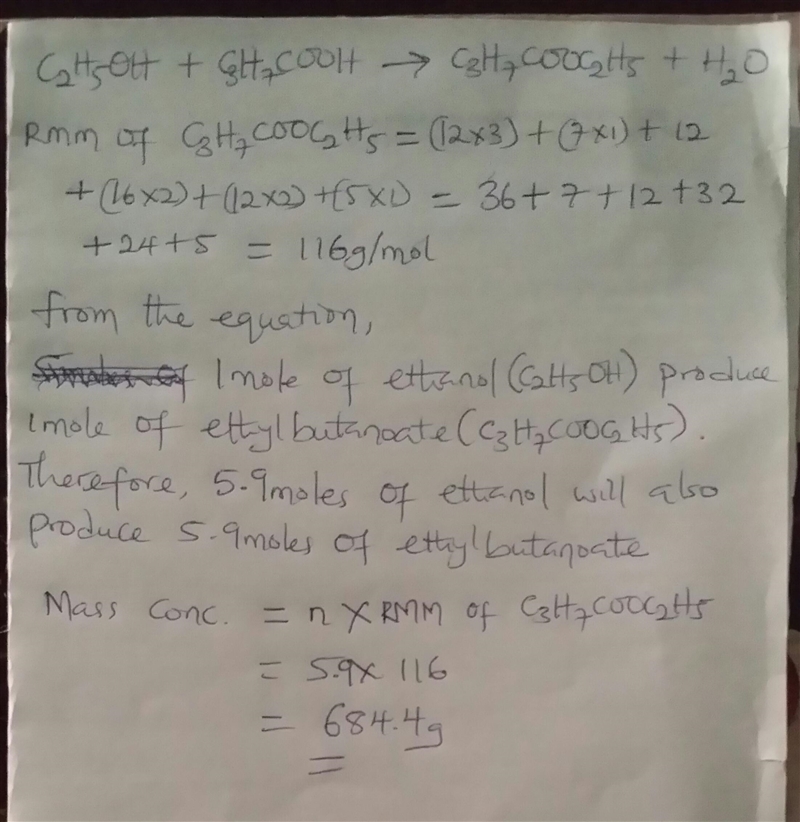 C2H5OH + C3H7COOH → C3H7COOC2H5 + H2O
RMM of C3H7COOC2H5 = (12×3) + (7×1) + 12
+(16×2)+(12×2)+(5×1) = 36+7+12+32
+24+5 = 116g/mol
from the equation,
1mole of ethanol (C2H5OH) produce
1mole of ethylbutanoate (C3H7COOC2H5).
Therefore, 5.9moles of ethanol will also
produce 5.9moles of ethylbutanoate
Mass Conc. = n × RMM of C3H7COOC2H5
= 5.9× 116
= 684.4g